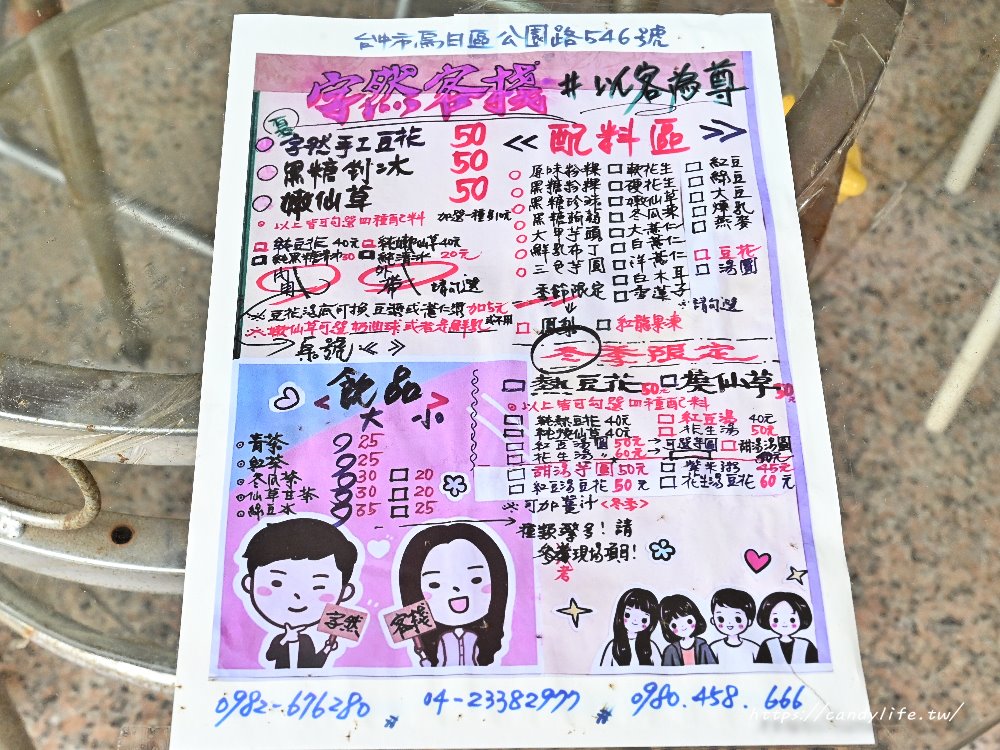 台中市烏日區公園路546號
字然客棧 #以客為尊
夏
字然手工豆花 50
黑糖剉冰 50
嫩仙草 50
以上皆可勾選四種配料 加選一種多10元
純豆花40元 純嫩仙草40元
純黑糖清冰30 純清冰20元
內用 外帶 請勾選
※豆花湯底可換豆漿或薏仁漿加5元
※嫩仙草可選奶油球或者是鮮乳 或不用
桌號《 》
《配料區》
原味粉粿 軟花生 紅豆
黑糖粉粿 硬花生 綠豆
黑糖珍珠 嫩仙草 大豆
黑糖蒟蒻 冬瓜凍 煉乳
大甲芋頭 大薏仁 燕麥
鮮乳布丁 白薏仁
三色芋圓 洋薏仁 豆花
季節限定 白木耳 湯圓
雪蓮子 請勾選
鳳梨 紅龍果凍
冬季限定
熱豆花50元 燒仙草50
以上皆可勾選四種配料
純熱豆花40元 紅豆湯40元
純燒仙草40元 花生湯50元
紅豆湯圓50元 →可選芋圓 甜湯湯圓
花生湯〃60元
甜湯芋圓50元 紫米粥45元
紅豆湯豆花50元 花生湯豆花60元
※可加薑汁<冬季>
種類繁多!請
參考現場項目!
<飲品>
大 小
青茶 25
紅茶 25
冬瓜茶 30 20
仙草甘茶 30 20
綠豆冰 35 25
字然 客棧
0982-676280 04-23382977 0980.458.666
https://candylife.tw/